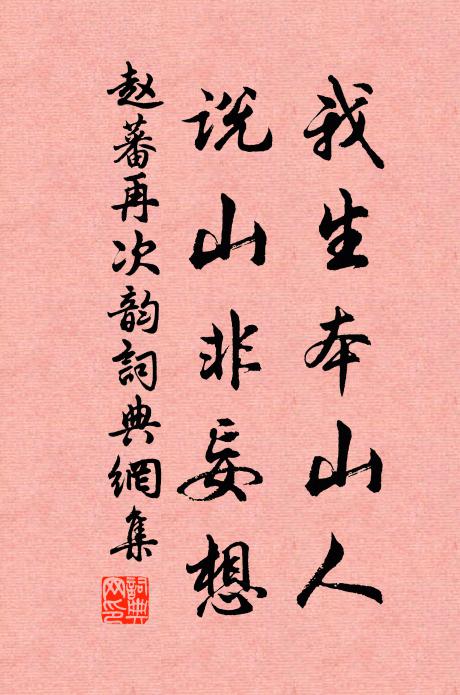 我生本山人
说山非妄想
赵蕃再次韵詞典網集
詞典
网印